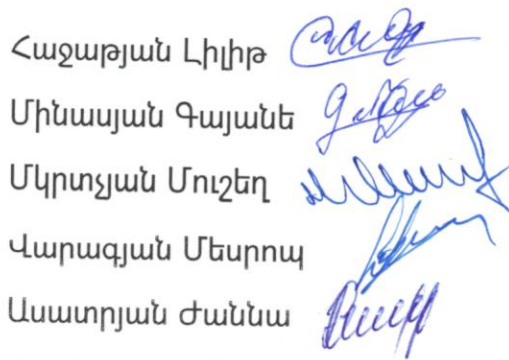 Հաջաթյան Լիլիթ
Մինասյան Գայանե
Մկրտչյան Մուշեղ
Վարագյան Մեսրոպ
Ասատրյան Ժաննա